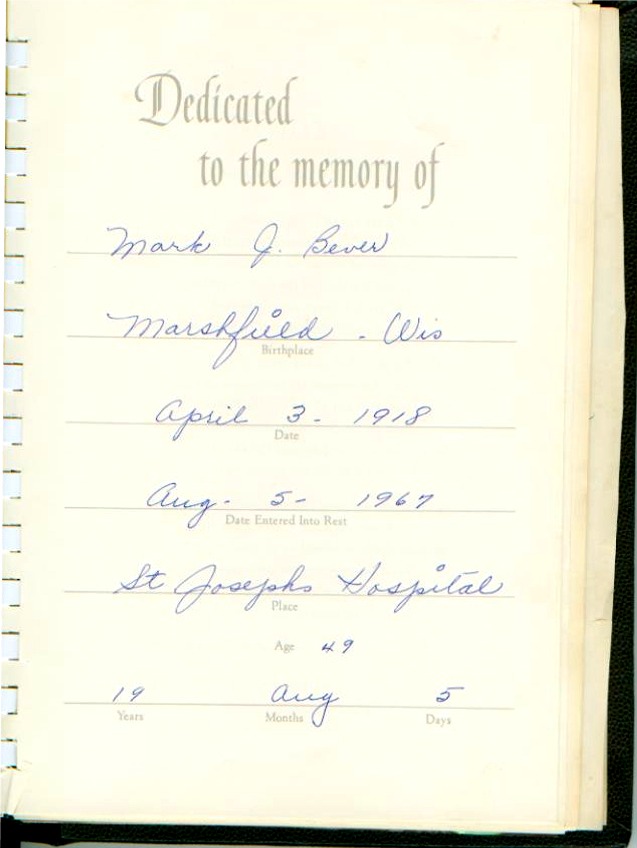 Dedicated
to the memory of
Mark J. Bever
Marshfield - Wis
Birthplace
April 3 - 1918
Date
Aug - 5 - 1967
Date Entered Into Rest
St Josephs Hospital
Place
Age 49
19 Aug 5
Years Months Days